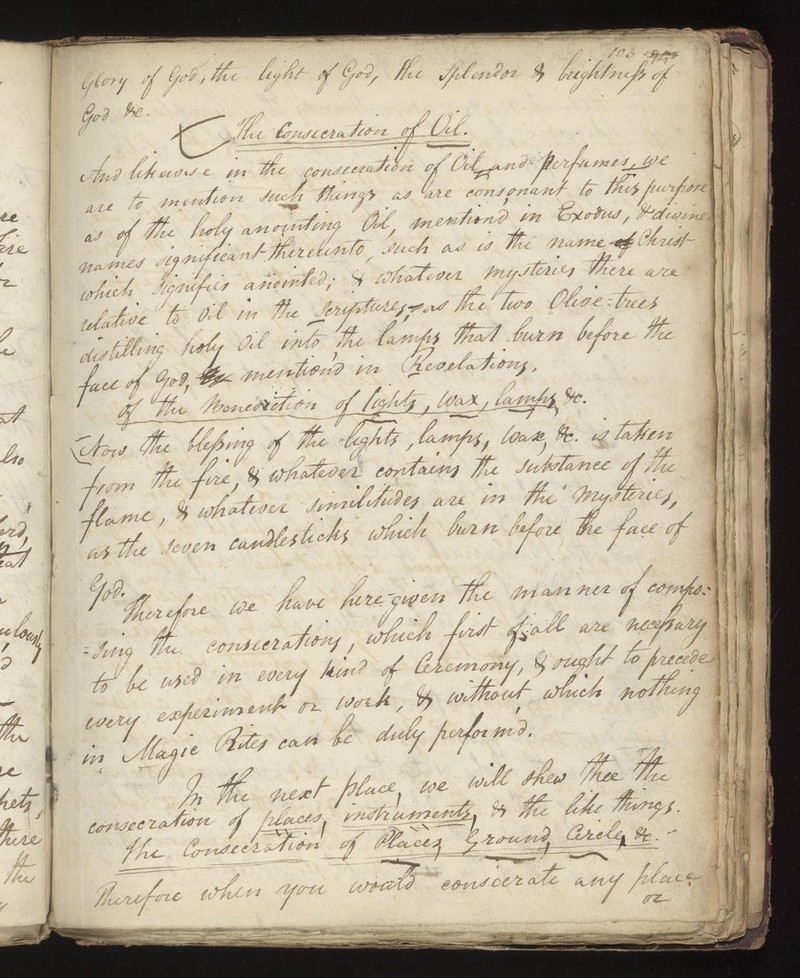 103
Glory of God, the light of God, the Splendor & brightness of
God &c.
The Consecration of Oil.
And likewise in the consecration of Oil, and perfumes, we
are to mention such things as are consonant to this purpose
as of the holy anointing Oil, mention'd in Exodus, & divine
names significant thereunto, such as is the name of Christ
which signifies anointed; & whatever mysteries there are
relative to oil in the scriptures, as the two Olive-trees
distilling holy Oil into the lamps that burn before the
face of God, mention'd in Revelations.
of the Benediction of lights, wax, lamps, &c.
Now the blessing of the lights, lamps, wax, &c. is taken
from the fire, & whatever contains the substance of the
flame, & whatever similitudes are in the mysteries,
as the seven candlesticks which burn before the face of
God.
Therefore we have here given the manner of compo=
=sing the consecrations, which first of all are necessary
to be used in every kind of Ceremony, & ought to precede
every experiment or work, & without which nothing
in Magic Rites can be duly perform'd.
In the next place, we will shew thee the
consecration of places, instruments, & the like things.
The Consecration of Places, Ground, Circle, &c.
Therefore when you would consecrate any place
or